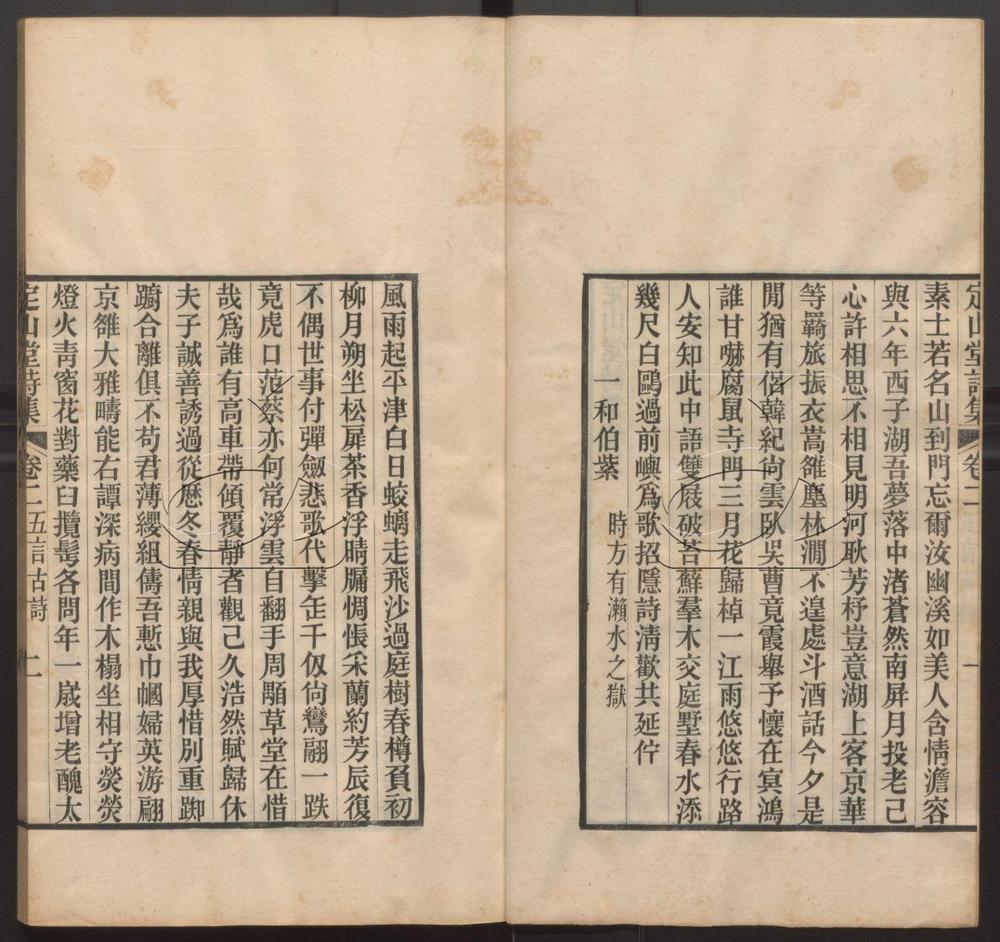 定山堂詩集 卷二 一
素士若名山到門忘爾汝幽溪如美人含情澹容
與六年西子湖吾夢落中渚蒼然南屏月投老己
心許相思不相見明河耿芳杼豈意湖上客京華
等羈旅振衣嵩雒塵林澗不遑處斗酒話今夕是
閒猶有侶韓紀尙雲臥吳曹竟霞舉予懷在冥鴻
誰甘嚇腐鼠寺門三月花歸棹一江雨悠悠行路
人安知此中語雙屐破苔蘚羣木交庭墅春水添
幾尺白鷗過前嶼爲歌招隱詩淸歡共延佇
一和伯紫 時方有瀨水之獄
風雨起平津白日蛟螭走飛沙過庭樹春樽負初
柳月朔坐松扉茶香浮晴牖惆悵禾蘭約芳辰復
不偶世事付彈劍悲歌代擊缶千仭尙鸞翮一跌
竟虎口范蔡亦何常浮雲自翻手周顒草堂在惜
哉爲誰有高車帶傾覆靜者觀己久浩然賦歸休
夫子誠善誘過從歷冬春情親與我厚惜別重踟
躕合離俱不苟君薄纓組儔吾慙巾幗婦英游翩
京雒大雅疇能右譚深病間作木榻坐相守熒熒
燈火靑窗花對藥臼攬髩各問年一歲增老醜太
定山堂詩集 卷二 五言古詩 二